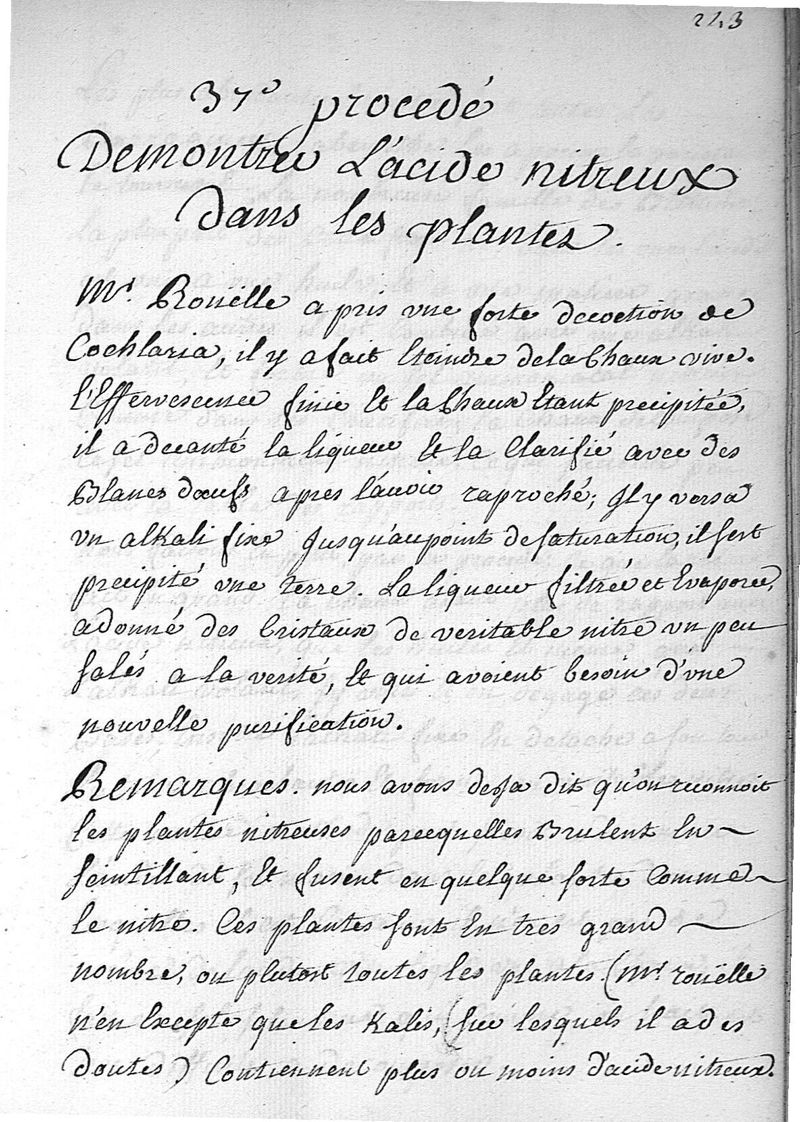 223
37e procedé
Demontrer L'acide nitreux
dans les plantes.
Mr. Rouëlle a pris vne forte decoction de
Cochlaria, il y a fait Eteindre de la Chaux vive.
l'Effervescence finie Et la Chaux Etant precipitée,
il a decanté la liqueur Et la Clarifié avec des
Blancs d'oeufs apres l'avoir raproché; Il y versa
vn alKali fixe Jusqu'au point de saturation, il s'est
precipité vne terre. La liqueur filtrée et Evaporée,
a donné des Cristaux de veritable nitre vn peu
salés a la verité, Et qui avoient besoin d'vne
nouvelle purification.
Remarques. nous avons deja dit qu'on reconnoit
les plantes nitreuses parcequelles Brulent En
scintillant, Et fusent en quelque sorte Comme
le nitre. Ces plantes sont En tres grand
nombre, ou plutost toutes les plantes (Mr. rouëlle
n'en Excepte que les Kalis, sur lesquels il a des
doutes) Contiennent plus ou moins d'acide nitreux.